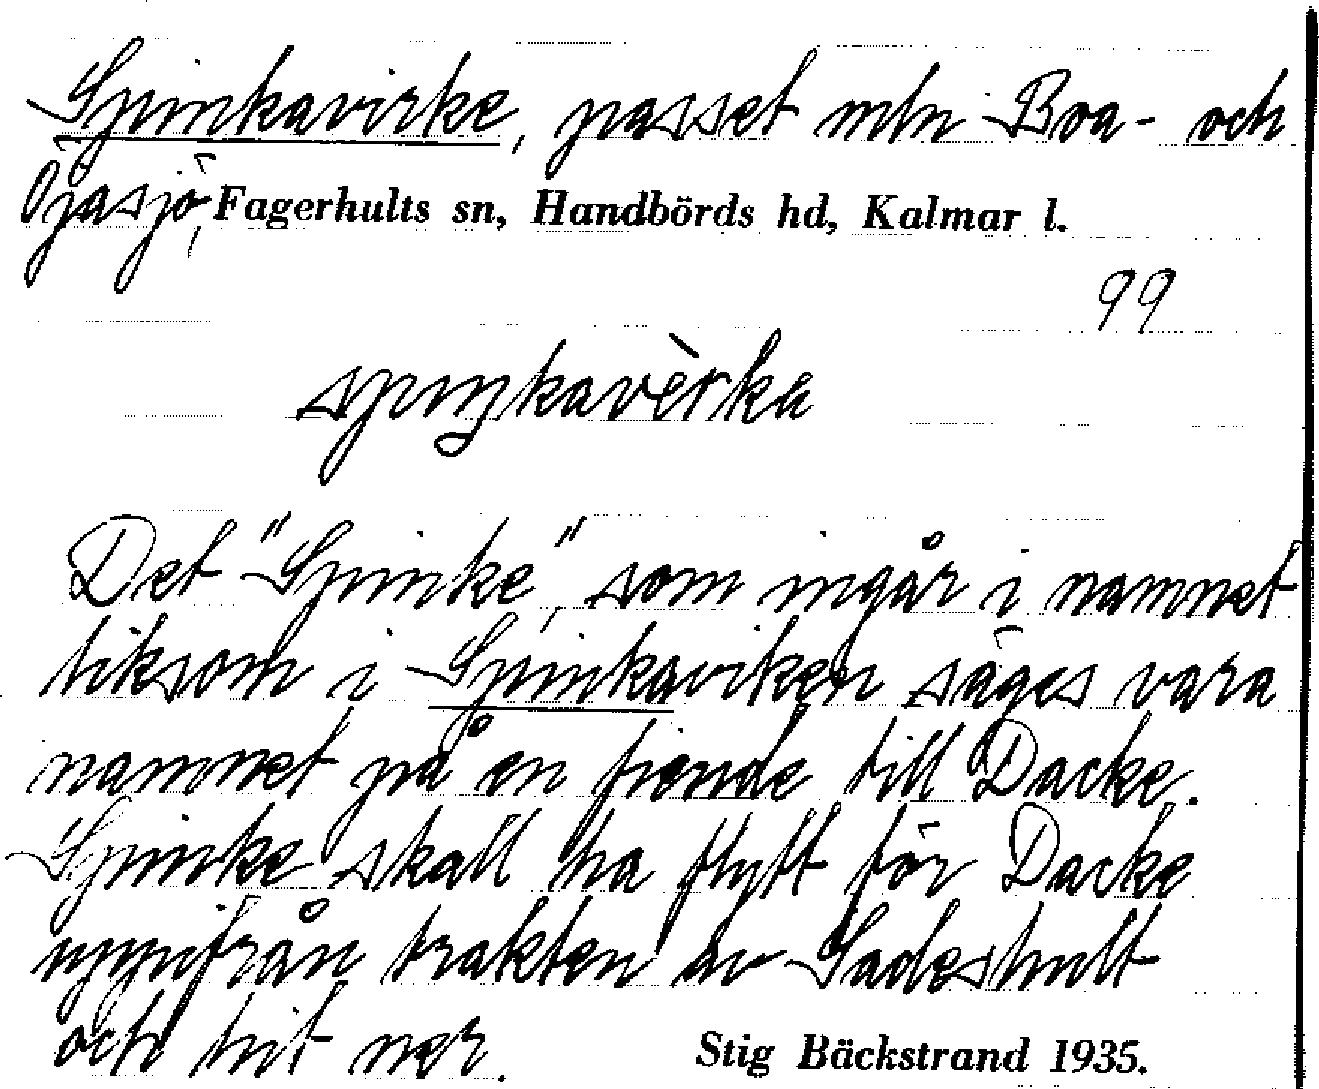 Spinkavirke, passet mln Boa- och
Öjasjö, Fagerhults sn, Handbörds hd, Kalmar l.
99
spiŋkavèrka
Det "Spinke", som ingår i namnet
liksom i Spinkaviken säges vara
namnet på en frände till Dacke.
Spinke skall ha flytt för Dacke
uppifrån trakten av Sadeshult
och hit ner.
Stig Bäckstrand 1935.